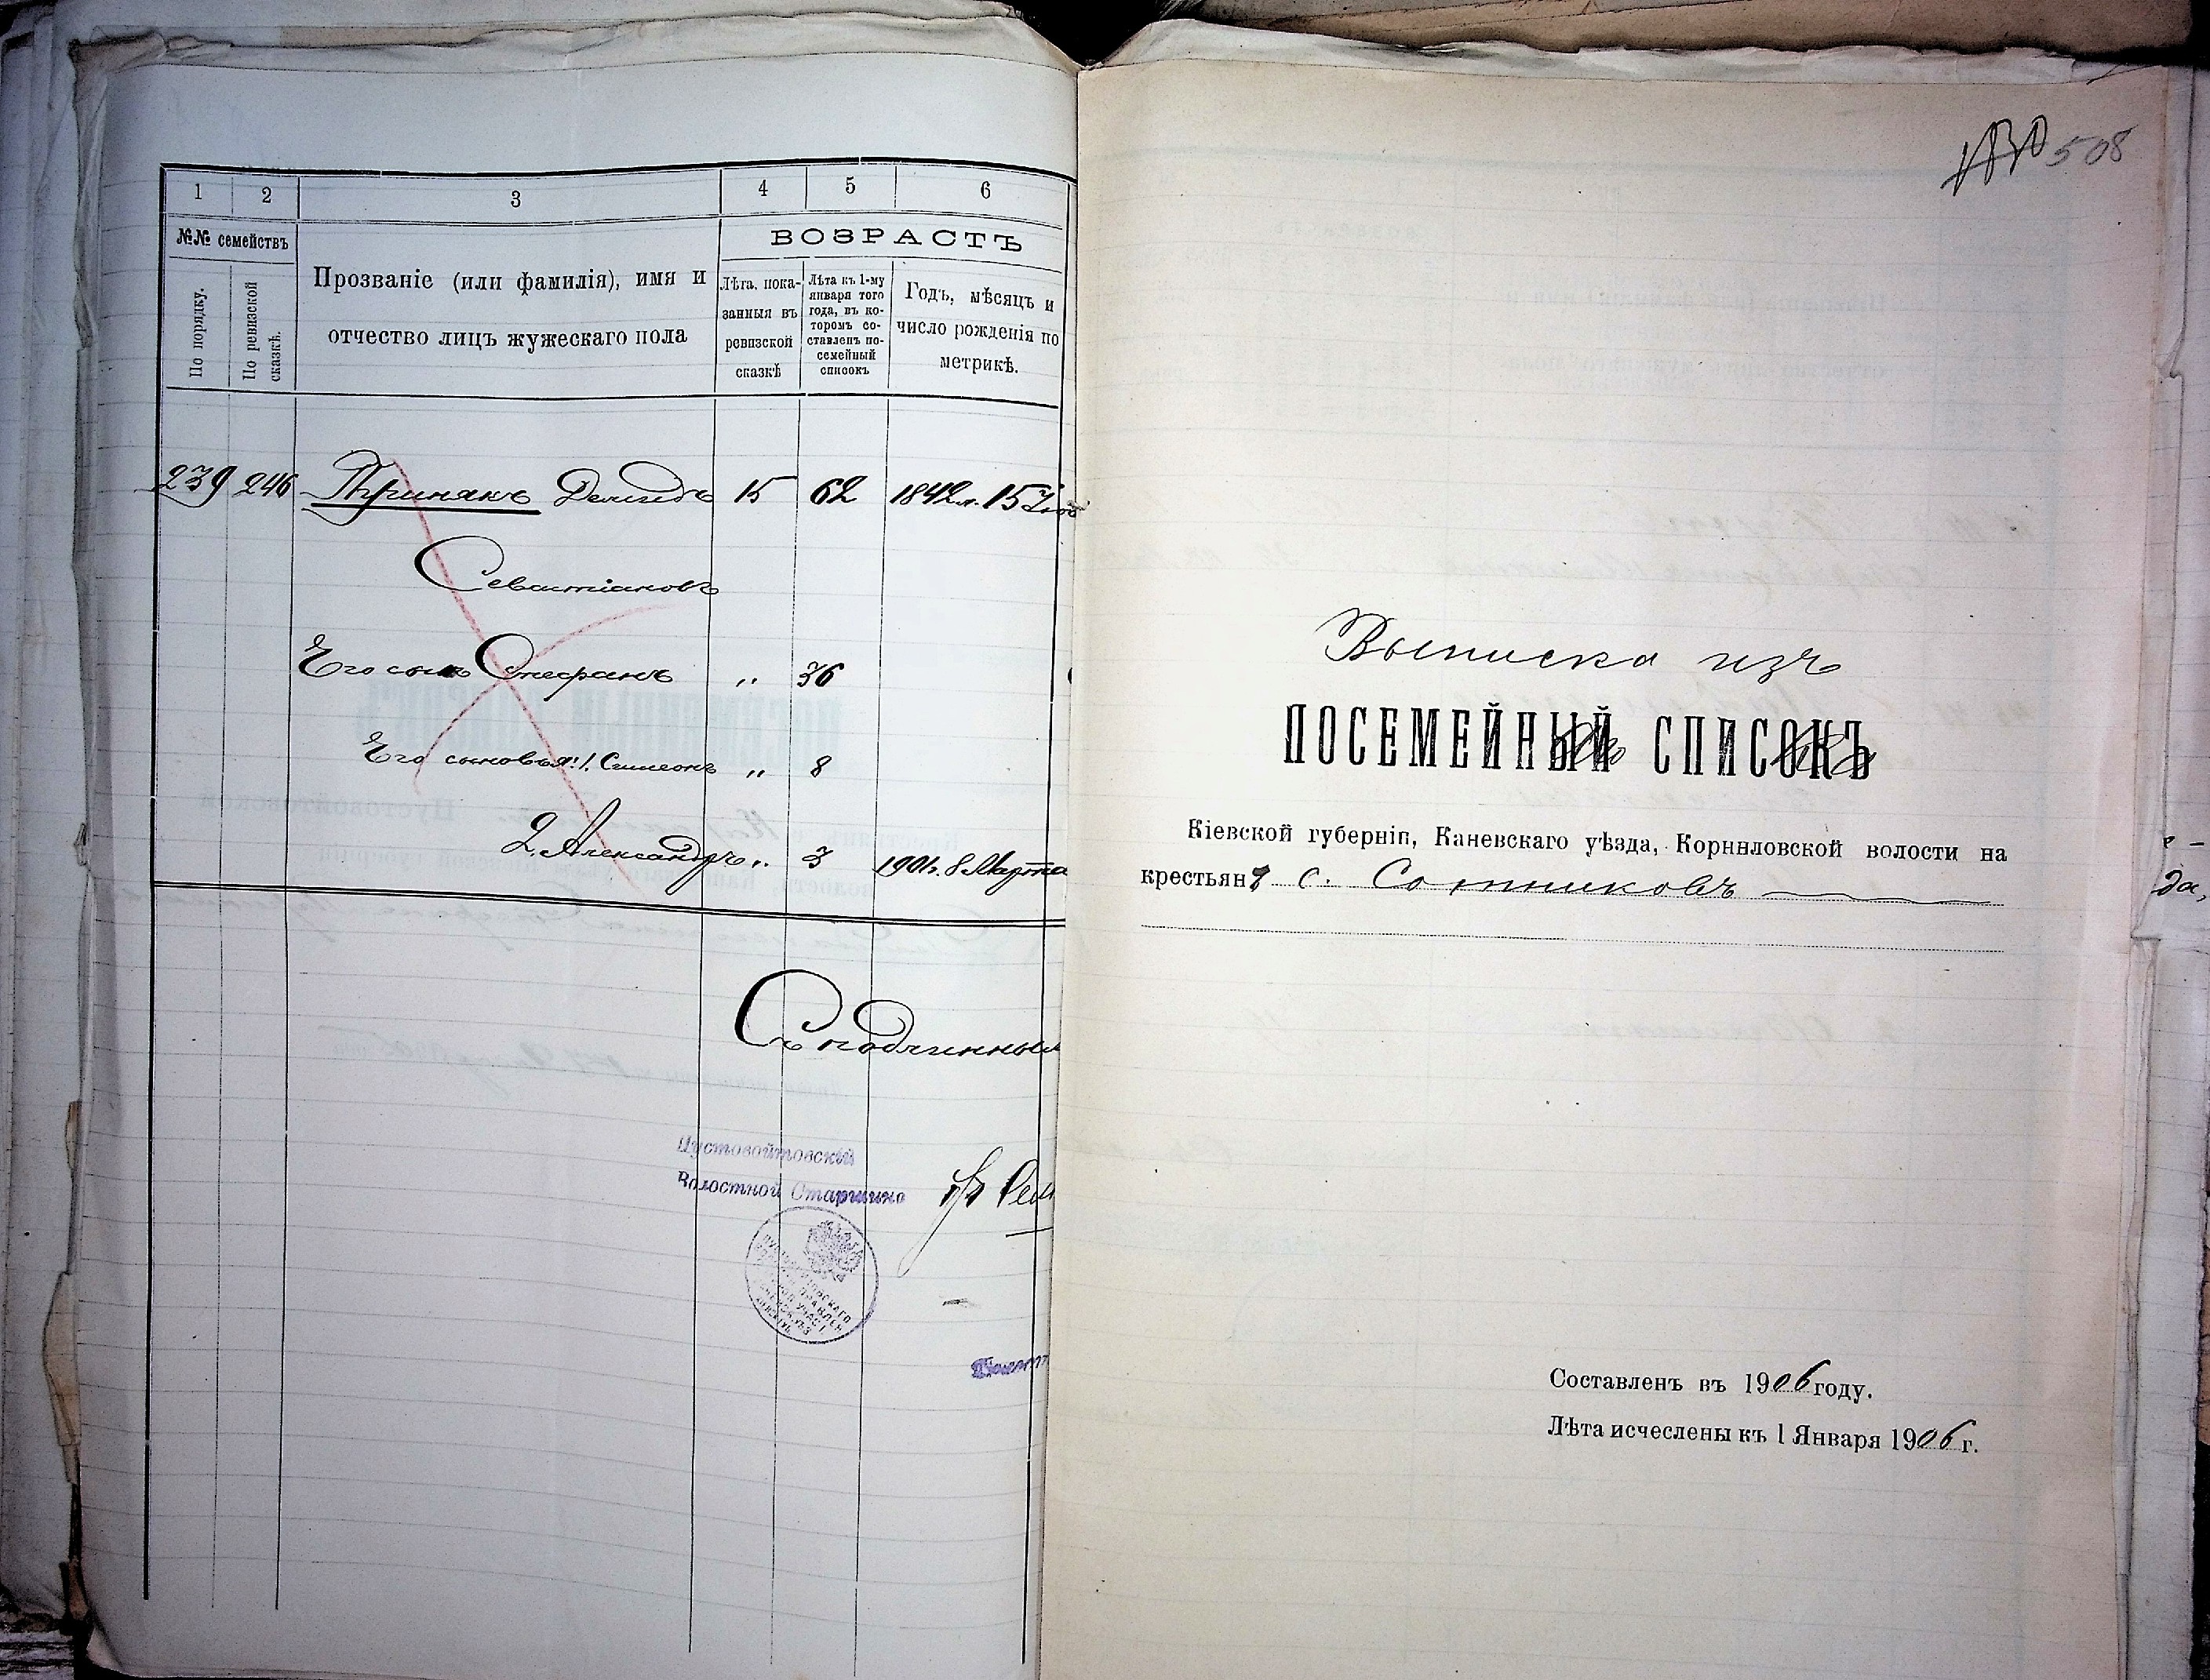 1 2 3 4 5 6
№№ семействъ
ВОЗРАСТЪ
По порядку.
По ревизской сказкѣ.
Прозваніе (или фамилія), имя и
отчество лицъ жужескаго пола
Лѣта, пока-
занныя въ
ревизской
сказкѣ
Лѣта къ 1-му
января того
года, въ ко-
торомъ со-
ставленъ по-
семейный
списокъ
Годъ, мѣсяцъ и
число рожденія по
метрикѣ.
239 246 Демидъ 15 62 1842 г. 15
Севастіановъ
Его сынъ Стефанъ „ 36
Его сыновья: 1. Симеонъ „ 8
2. Александръ „ 3 1901 г. 8 Марта
Съ подлиннымъ
Пустовойтовскій
Волостной Старшина
508
Выписка изъ
ПОСЕМЕЙНЫЙ СПИСОКЪ
Кіевской губерніи, Каневскаго уѣзда, Корниловской волости на
крестьян с. Сотниковъ
Составленъ въ 1906 году.
Лѣта исчеслены къ 1 Января 1906 г.